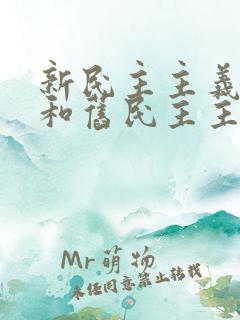 新民主主義
和舊民主主
Mr萌物
未经同意禁止转载